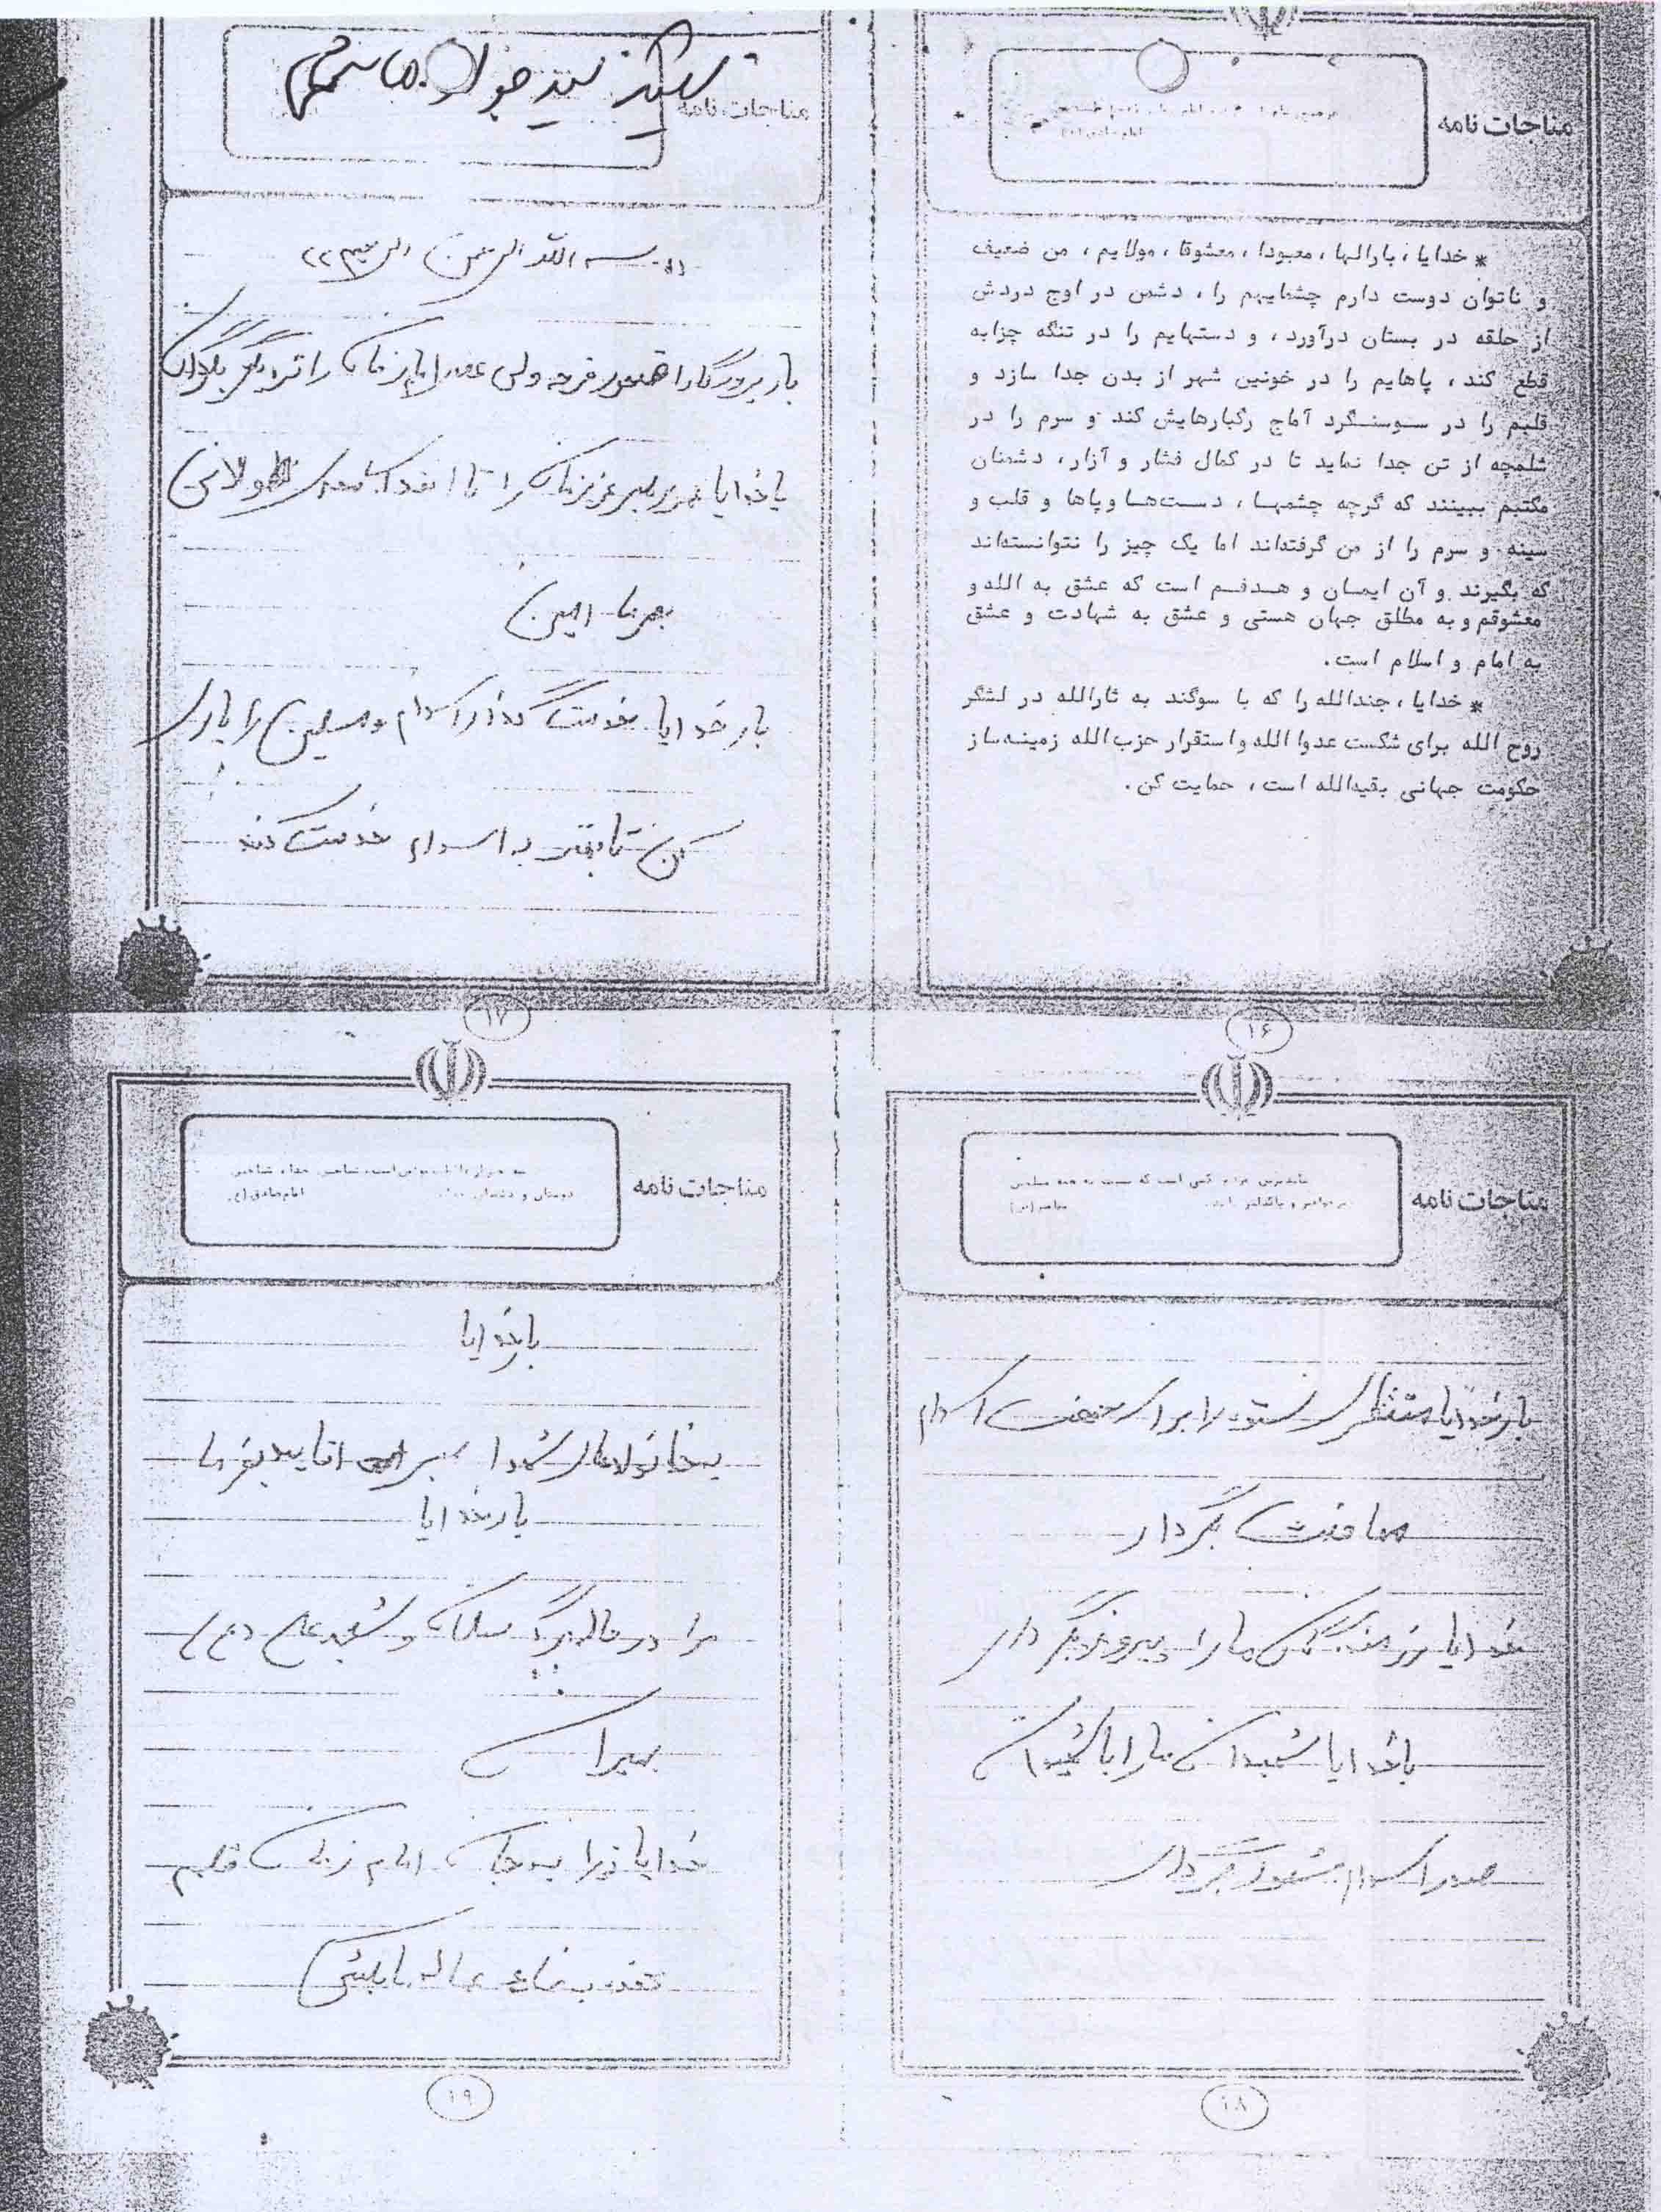 مناجات نامه
امام صادق (ع)
* خدایا ، بارالها ، معبودا ، معشوقا ، مولایم ، من ضعیف
و ناتوان دوست دارم چشمایهم را ، دشمن در اوج دردش
از حلقه در بستان درآورد ، و دستهایم را در تنگه چزابه
قطع کند ، پاهایم را در خونین شهر از بدن جدا سازد و
قلبم را در سوسنگرد آماج رگبارهایش کند و سرم را در
شلمچه از تن جدا نماید تا در کمال فشار و آزار ، دشمنان
مکتبم ببینند که گرچه چشمها ، دست‌ها و پاها و قلب و
سینه و سرم را از من گرفته‌اند اما یک چیز را نتوانسته‌اند
که بگیرند و آن ایمان و هدفم است که عشق به الله و
معشوقم و به مطلق جهان هستی و عشق به شهادت و عشق
به امام و اسلام است .
* خدایا ، جندالله را که با سوگند به ثارالله در لشگر
روح الله برای شکست عدوا الله و استقرار حزب الله زمینه‌ساز
حکومت جهانی بقیه‌الله است ، حمایت کن .
۱۶
شهید سید جواد هاشمی
مناجات نامه
بسم الله الرحمن الرحیم
بار پروردگارا فرج ولی عصر امام زمان را نزدیکتر بگردان
بار خدایا رهبر عزیزمان را تا انقلاب مهدی طولانی
بفرما امین
بار خدایا خدمت گذار اسلام و مسلمین را یاری
کن تا بهتر به اسلام خدمت کند
۱۷
مناجات نامه
عابدترین مردم کسی است که نسبت به همه مسلمین
بار خدایا منتظری نستوه را برای منفعت اسلام
محافظت بگردان
خدایا رزمندگان ما را پیروز بگردان
بار خدایا شهیدان ما را با شهیدان
صدر اسلام محشور بگردان
۱۸
مناجات نامه
دوستان و دشمنان
امام صادق (ع)
بار خدایا
به خانواده‌های شهدا صبر عطا بفرما
بار خدایا
مرا در حال مرگ مسلمان و شیعه علی (ع)
بمیران
خدایا تو را به جان امام زمان قسم
۱۹